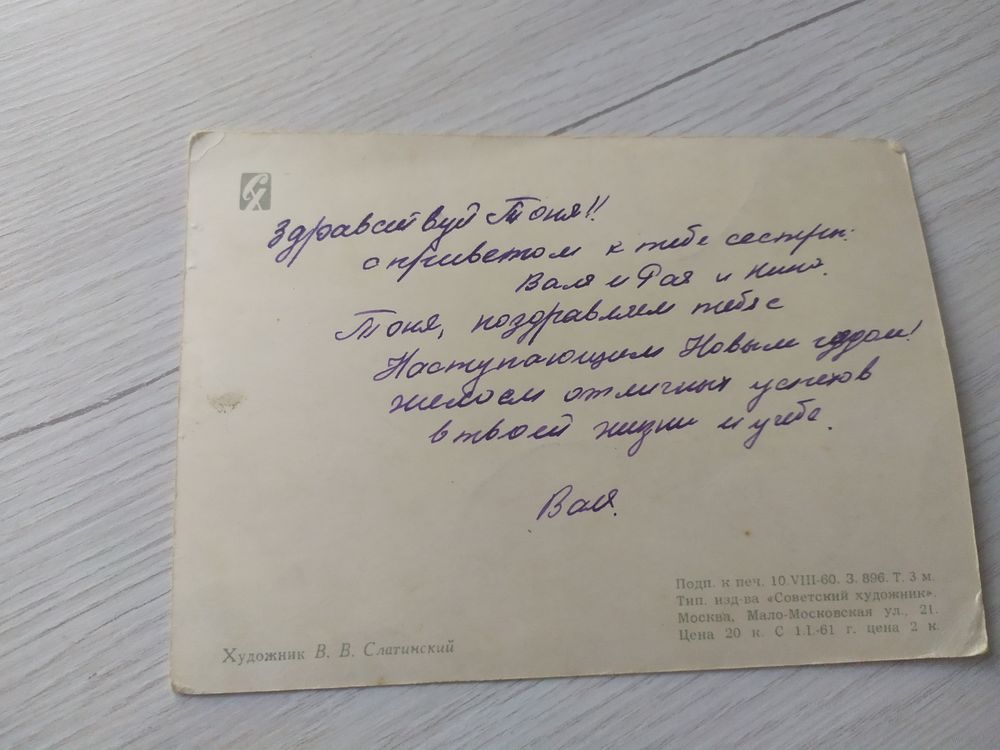 СХ
Здравствуй Тоня!!
с приветом к тебе сестры:
Валя и Рая и Нина.
Тоня, поздравляем тебя с
Наступающим Новым годом!
желаем отличных успехов
в твоей жизни и учебе.
Валя.
Подп. к печ. 10.VIII-60. З. 896. Т. 3 м.
Тип. изд-ва «Советский художник».
Москва, Мало-Московская ул., 21.
Цена 20 к. С 1.I.-61 г. цена 2 к.
Художник В. В. Слатинский